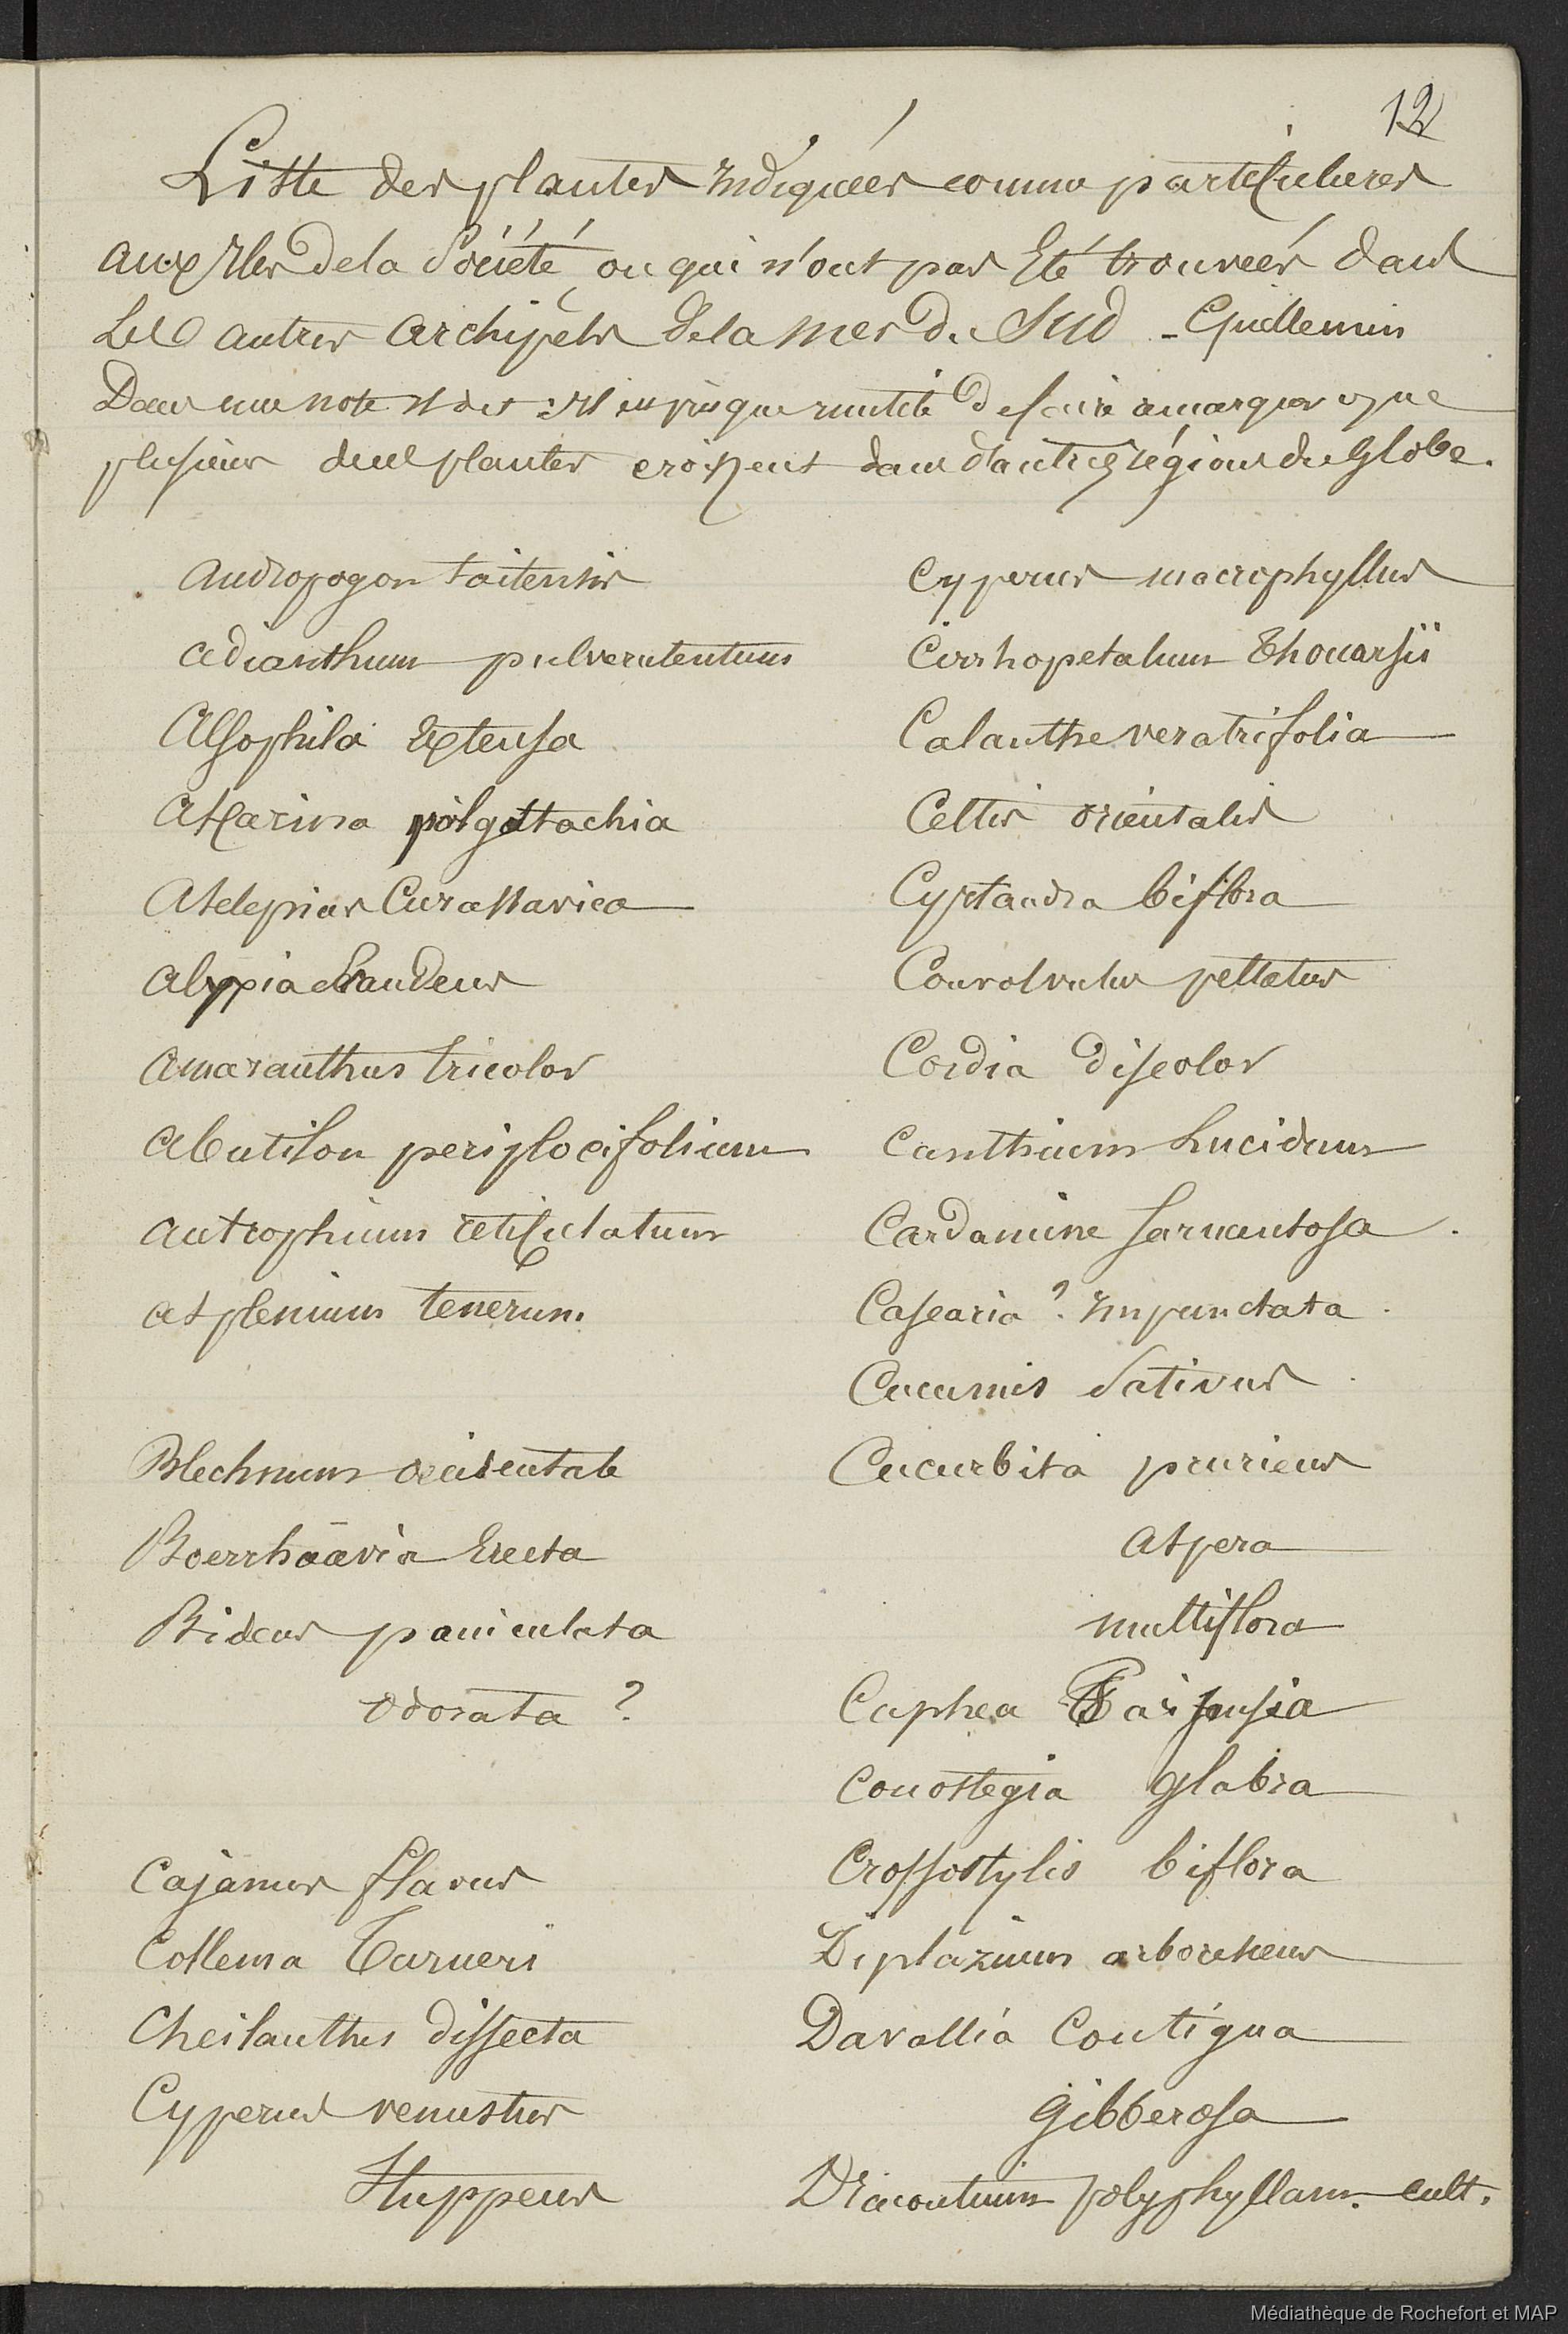 12
Liste des plantes Indiquées comme particulieres
aux Iles de la Société, ou qui n'ont pas Eté trouveés dans
Les autres archipels de la mer du Sud - Guillemin
Dans une note dit : Il est presque inutile de faire remarquer que
plusieurs des plantes croissent dans d'autres régions du Globe.
andropogon taitensis
adianthum pulverulentum
Alsophila Extensa
Ascarina polystachia
Asclepias Curassavica
Alyxia Scandens
Amaranthus tricolor
abutilon periplocifolium
antrophium reticulatum
asplenium tenerum.
Blechnum occidentale
Boerrhaavia Erecta
Bidens paniculata
odorata ?
Cajanus flavus
Collema Turneri
Cheilanthes dissecta
Cyperus venustus
Stuppeus
Cyperus macrophyllus
Cirrhopetalum Thouarsii
Calanthe veratrifolia
Celtis orientalis
Cyrtandra biflora
Convolvulus peltatus
Cordia discolor
Canthium Lucidum
Cardamine sarmentosa .
Casearia ? Impunctata .
Cucumis Sativus .
Cucurbita pruriens
Aspera
multiflora
Cuphea
Conostegia glabra
Crossostylis biflora
Diplazium arborescens
Davallia Contigua
Gibberosa
Dracontium polyphyllum. cult.
Médiathèque de Rochefort et MAP